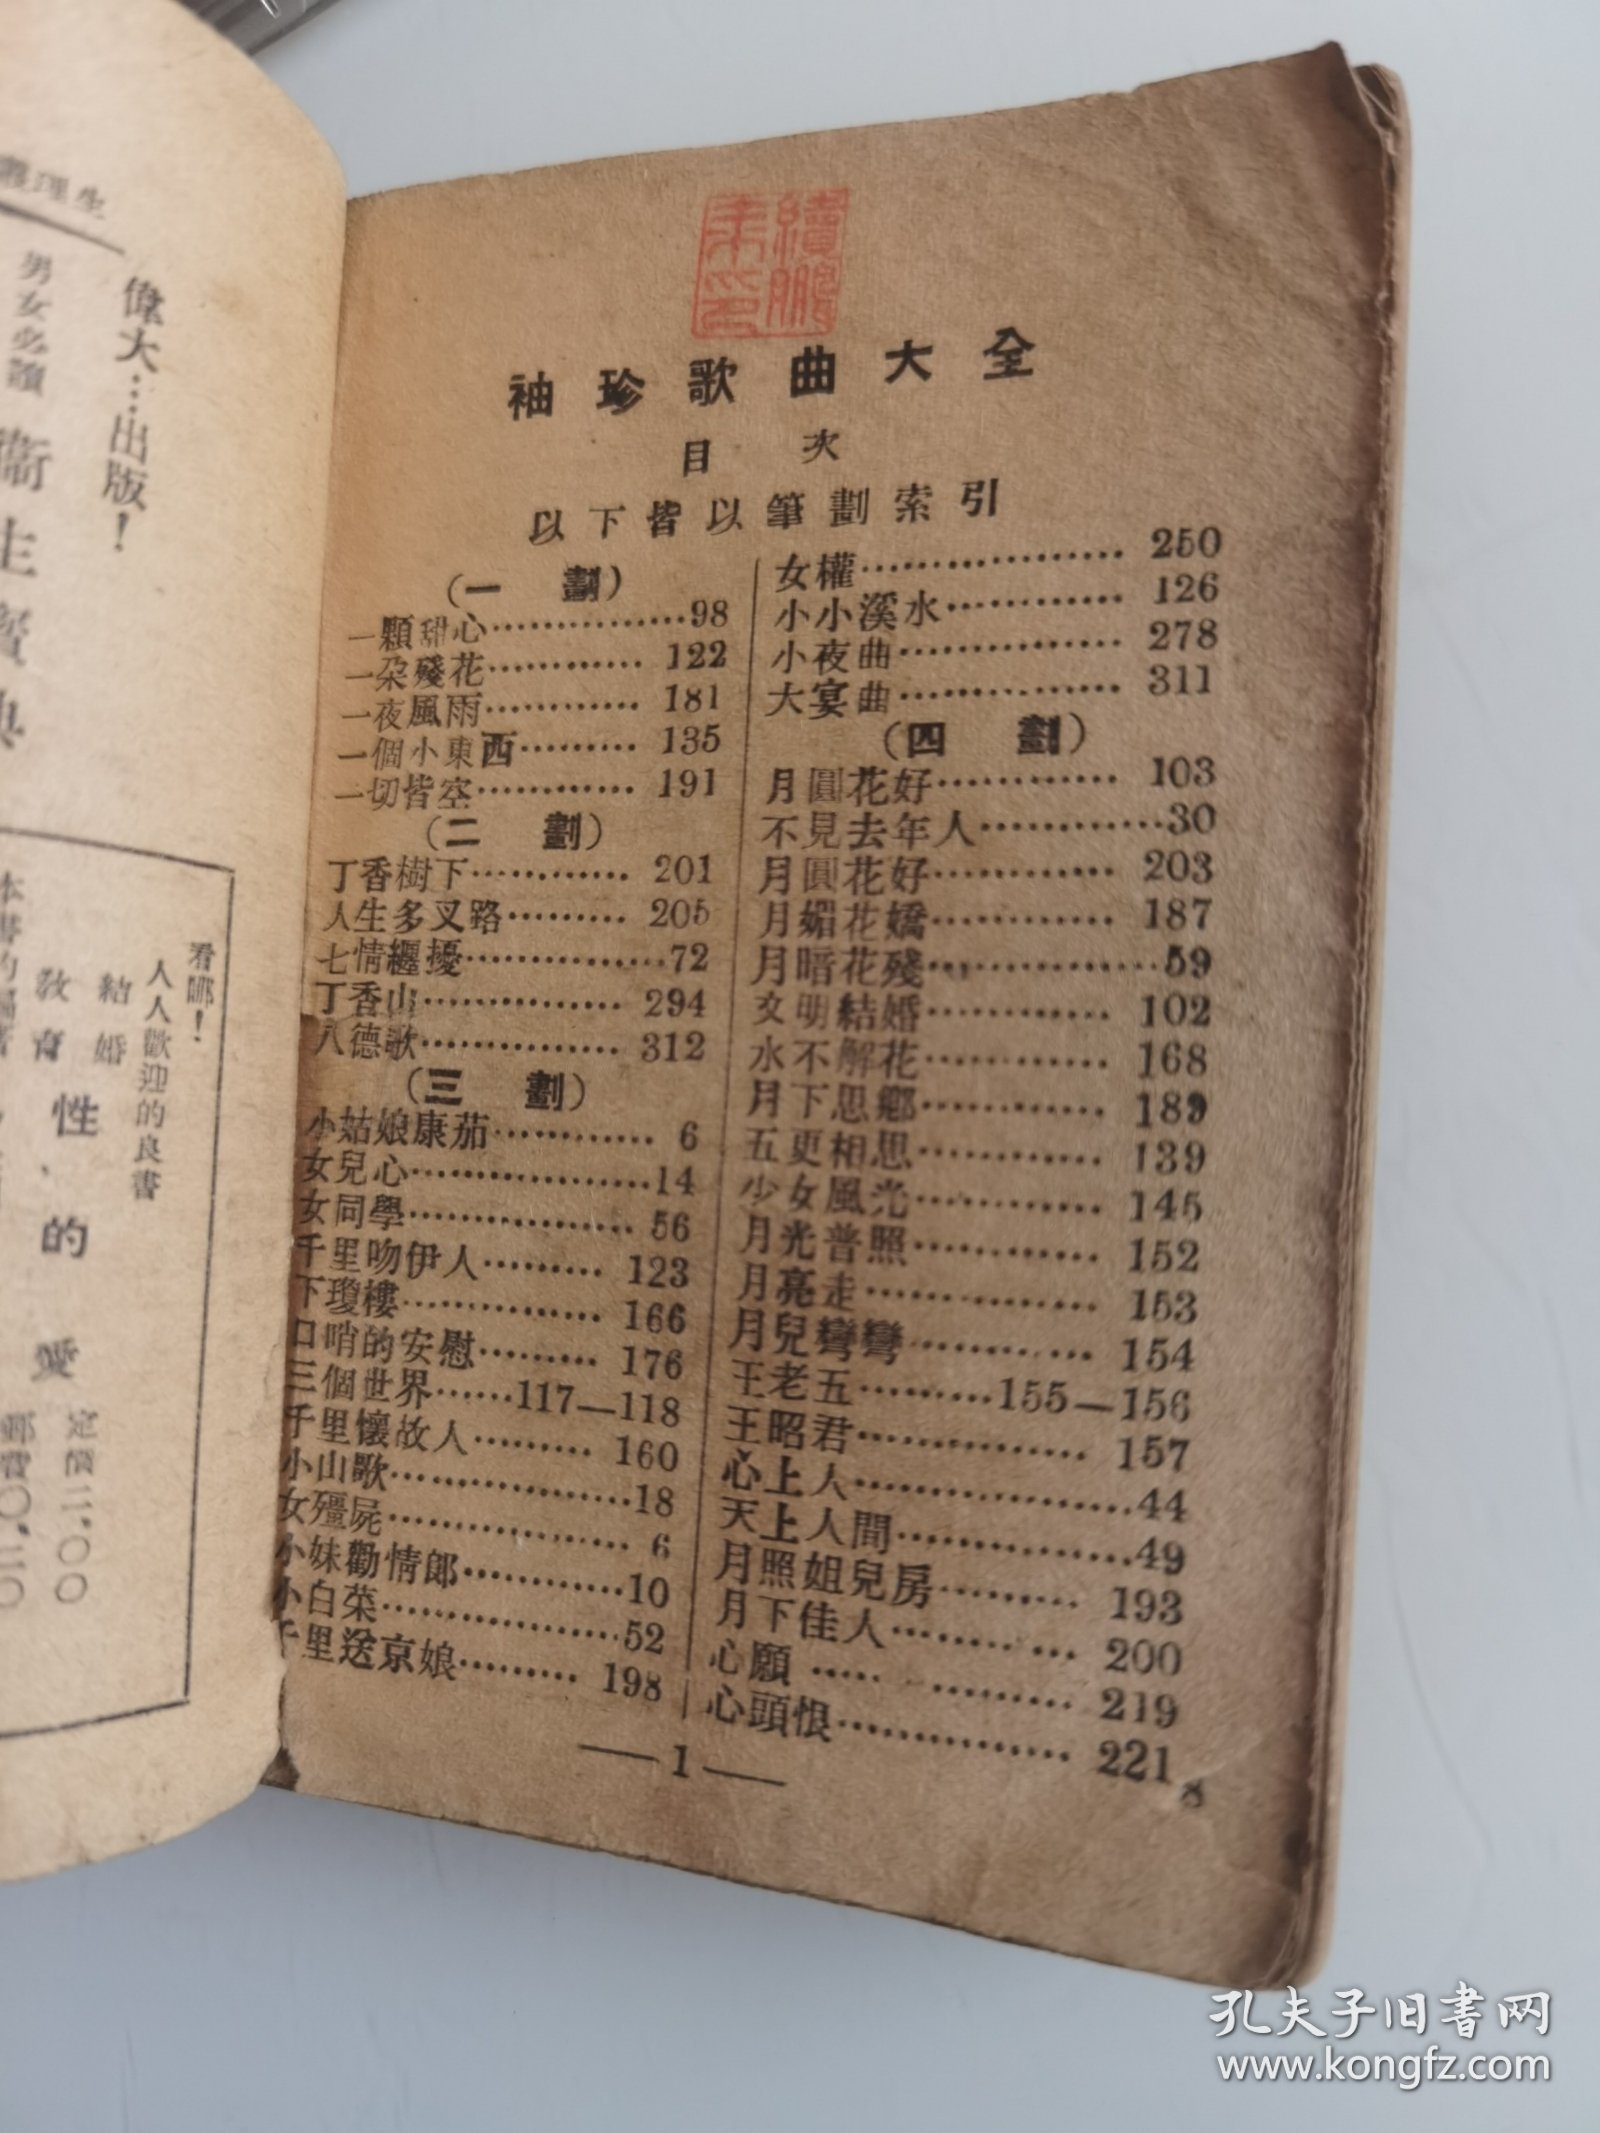 袖珍歌曲大全
目次
以下皆以筆劃索引
(一劃)
一顆甜心……………98
一朵殘花………… 122
一夜風雨………… 181
一個小東西……… 135
一切皆空………… 191
(二劃)
丁香樹下………… 201
人生多叉路……… 205
七情纏擾……………72
丁香山…………… 294
八德歌…………… 312
(三劃)
小姑娘康茄………… 6
女兒心………………14
女同學……………… 56
千里吻伊人……… 123
下瓊樓…………… 166
口哨的安慰……… 176
三個世界……117—118
千里懷故人……… 160
小山歌………………18
女殭屍……………… 6
小妹勸情郎…………10
小白菜………………52
千里送京娘……… 198
女權……………… 250
小小溪水………… 126
小夜曲…………… 278
大宴曲…………… 311
(四劃)
月圓花好………… 103
不見去年人…………30
月圓花好………… 203
月媚花嬌………… 187
月暗花殘……………59
文明結婚………… 102
水不解花………… 168
月下思鄉………… 189
五更相思………… 139
少女風光………… 145
月光普照………… 152
月亮走…………… 153
月兒彎彎………… 154
王老五………155—156
王昭君…………… 157
心上人………………44
天上人間……………49
月照姐兒房……… 193
月下佳人………… 200
心願 ………… 219
心頭恨…………… 221
—1—
8
生理叢
偉大…出版!
男女必讀
衞生寶典
看哪!
人人歡迎的良書
結婚
教育
性的愛
定價二.〇〇
郵費〇.二〇
續鵬
朱印
孔夫子旧書网
www.kongfz.com